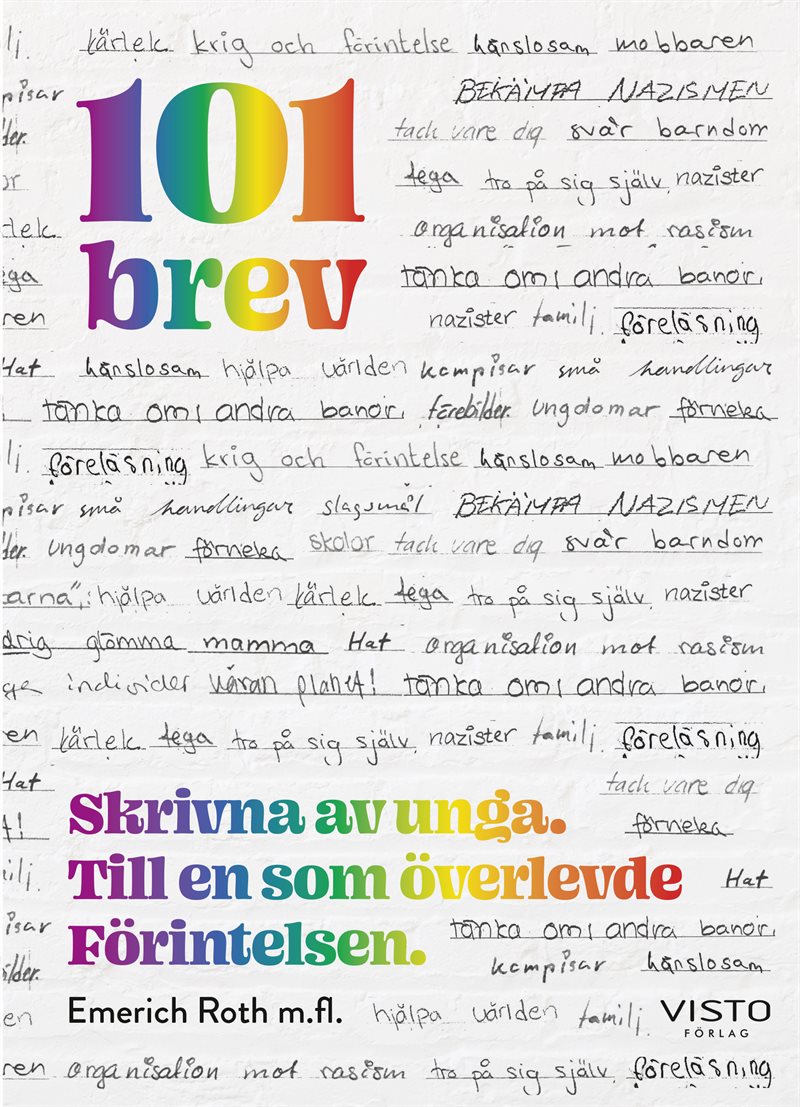 lj. kärlek krig och förintelse hänslosam mobbaren
pisar BEKÄMPA NAZISMEN
101
der. tack vare dig svår barndom
or fega tro på sig själv nazister
rlek organisation mot rasism
ega tänka om i andra banor.
brev
ren nazister familj. föreläsning
Hat hänslosam hjälpa världen kompisar små handlingar
tänka om i andra banor. förebilder. ungdomar förneka
lj. föreläsning krig och förintelse hänslosam mobbaren
pisar små handlingar slagsmål BEKÄMPA NAZISMEN
der. ungdomar förneka skolor tack vare dig svår barndom
karna", hjälpa världen kärlek fega tro på sig själv nazister
drig glömma mamma Hat organisation mot rasism
individer våran planet! tänka om i andra banor.
en kärlek fega tro på sig själv nazister familj. föreläsning
Hat tack vare dig
Skrivna av unga.
t! förneka
Till en som överlevde
ilj. Hat
isar tänka om i andra banor.
Förintelsen.
ilder. kompisar hänslosam
en Emerich Roth m.fl. hjälpa världen familj. VISTO
FÖRLAG
ren organisation mot rasism tro på sig själv föreläsning